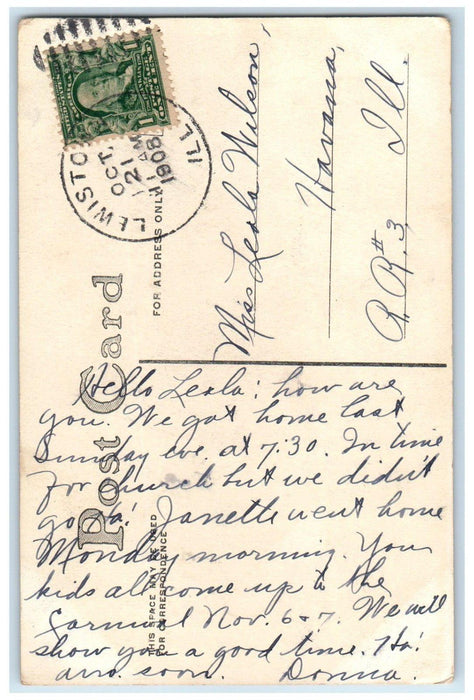 LEWISTO
OCT
21
AM
1908
ILL
Post Card
FOR ADDRESS ONLY
THIS SPACE MAY BE USED
FOR CORRESPONDENCE
Miss Lexla Wilson
Havana,
R.R.# 3, Ill.
Hello Lexla; how are
you. We got home last
Sunday eve, at 7:30. In time
for church but we didn't
go Ha! Janette went home
Monday morning. You
kids all come up to the
Carnival Nov. 6 & 7. We will
show you a good time. Ha!
ans. soon. Donna.